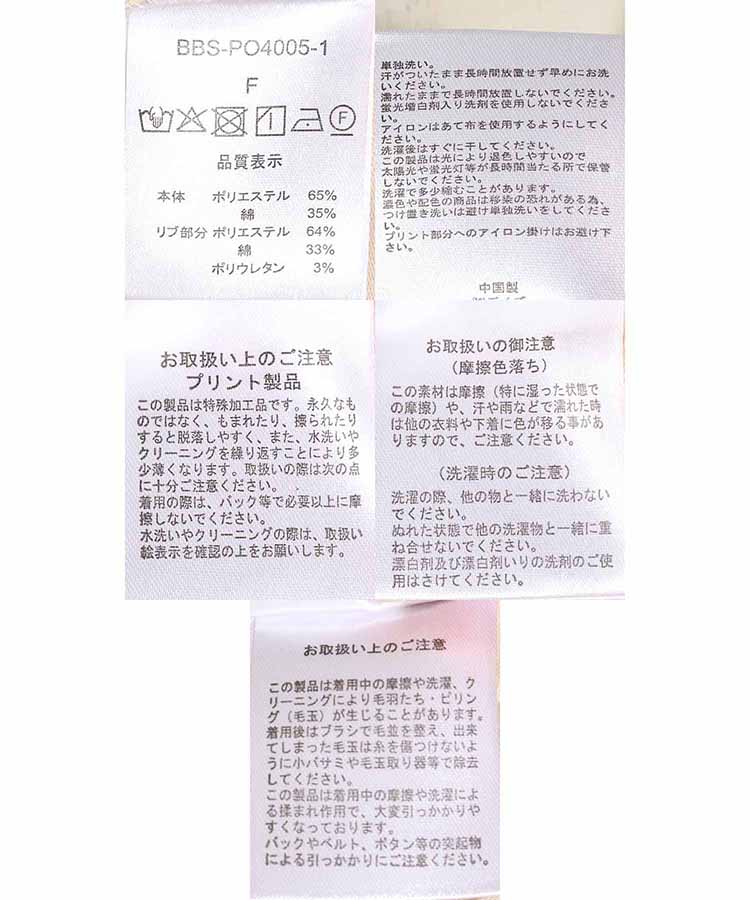 BBS-PO4005-1
F
F
品質表示
本体 ポリエステル 65%
綿 35%
リブ部分 ポリエステル 64%
綿 33%
ポリウレタン 3%
単独洗い。
汗がついたまま長時間放置せず早めにお洗
いください。
濡れたままで長時間放置しないでください。
蛍光増白剤入り洗剤を使用しないでくださ
い。
アイロンはあて布を使用するようにしてく
ださい。
洗濯後はすぐに干してください。
この製品は光により退色しやすいので
太陽光や蛍光灯等が長時間当たる所で保管
しないでください。
洗濯で多少縮むことがあります。
濃色や配色の商品は移染の恐れがある為、
つけ置き洗いは避け単独洗いをしてくださ
い。
プリント部分へのアイロン掛けはお避け下
さい。
中国製
お取扱い上のご注意
プリント製品
この製品は特殊加工品です。永久なも
のではなく、もまれたり、擦られたり
すると脱落しやすく、また、水洗いや
クリーニングを繰り返すことにより多
少薄くなります。取扱いの際は次の点
に十分ご注意ください。
着用の際は、バック等で必要以上に摩
擦しないでください。
水洗いやクリーニングの際は、取扱い
絵表示を確認の上をお願いします。
お取扱いの御注意
(摩擦色落ち)
この素材は摩擦(特に湿った状態で
の摩擦)や、汗や雨などで濡れた時
は他の衣料や下着に色が移る事があ
りますので、ご注意ください。
(洗濯時のご注意)
洗濯の際、他の物と一緒に洗わない
でください。
ぬれた状態で他の洗濯物と一緒に重
ね合せないでください。
漂白剤及び漂白剤いりの洗剤のご使
用はさけてください。
お取扱い上のご注意
この製品は着用中の摩擦や洗濯、ク
リーニングにより毛羽たち・ピリン
グ(毛玉)が生じることがあります。
着用後はブラシで毛並を整え、出来
てしまった毛玉は糸を傷つけないよ
うに小バサミや毛玉取り器等で除去
してください。
この製品は着用中の摩擦や洗濯によ
る揉まれ作用で、大変引っかかりや
すくなっております。
バックやベルト、ボタン等の突起物
による引っかかりにご注意ください。